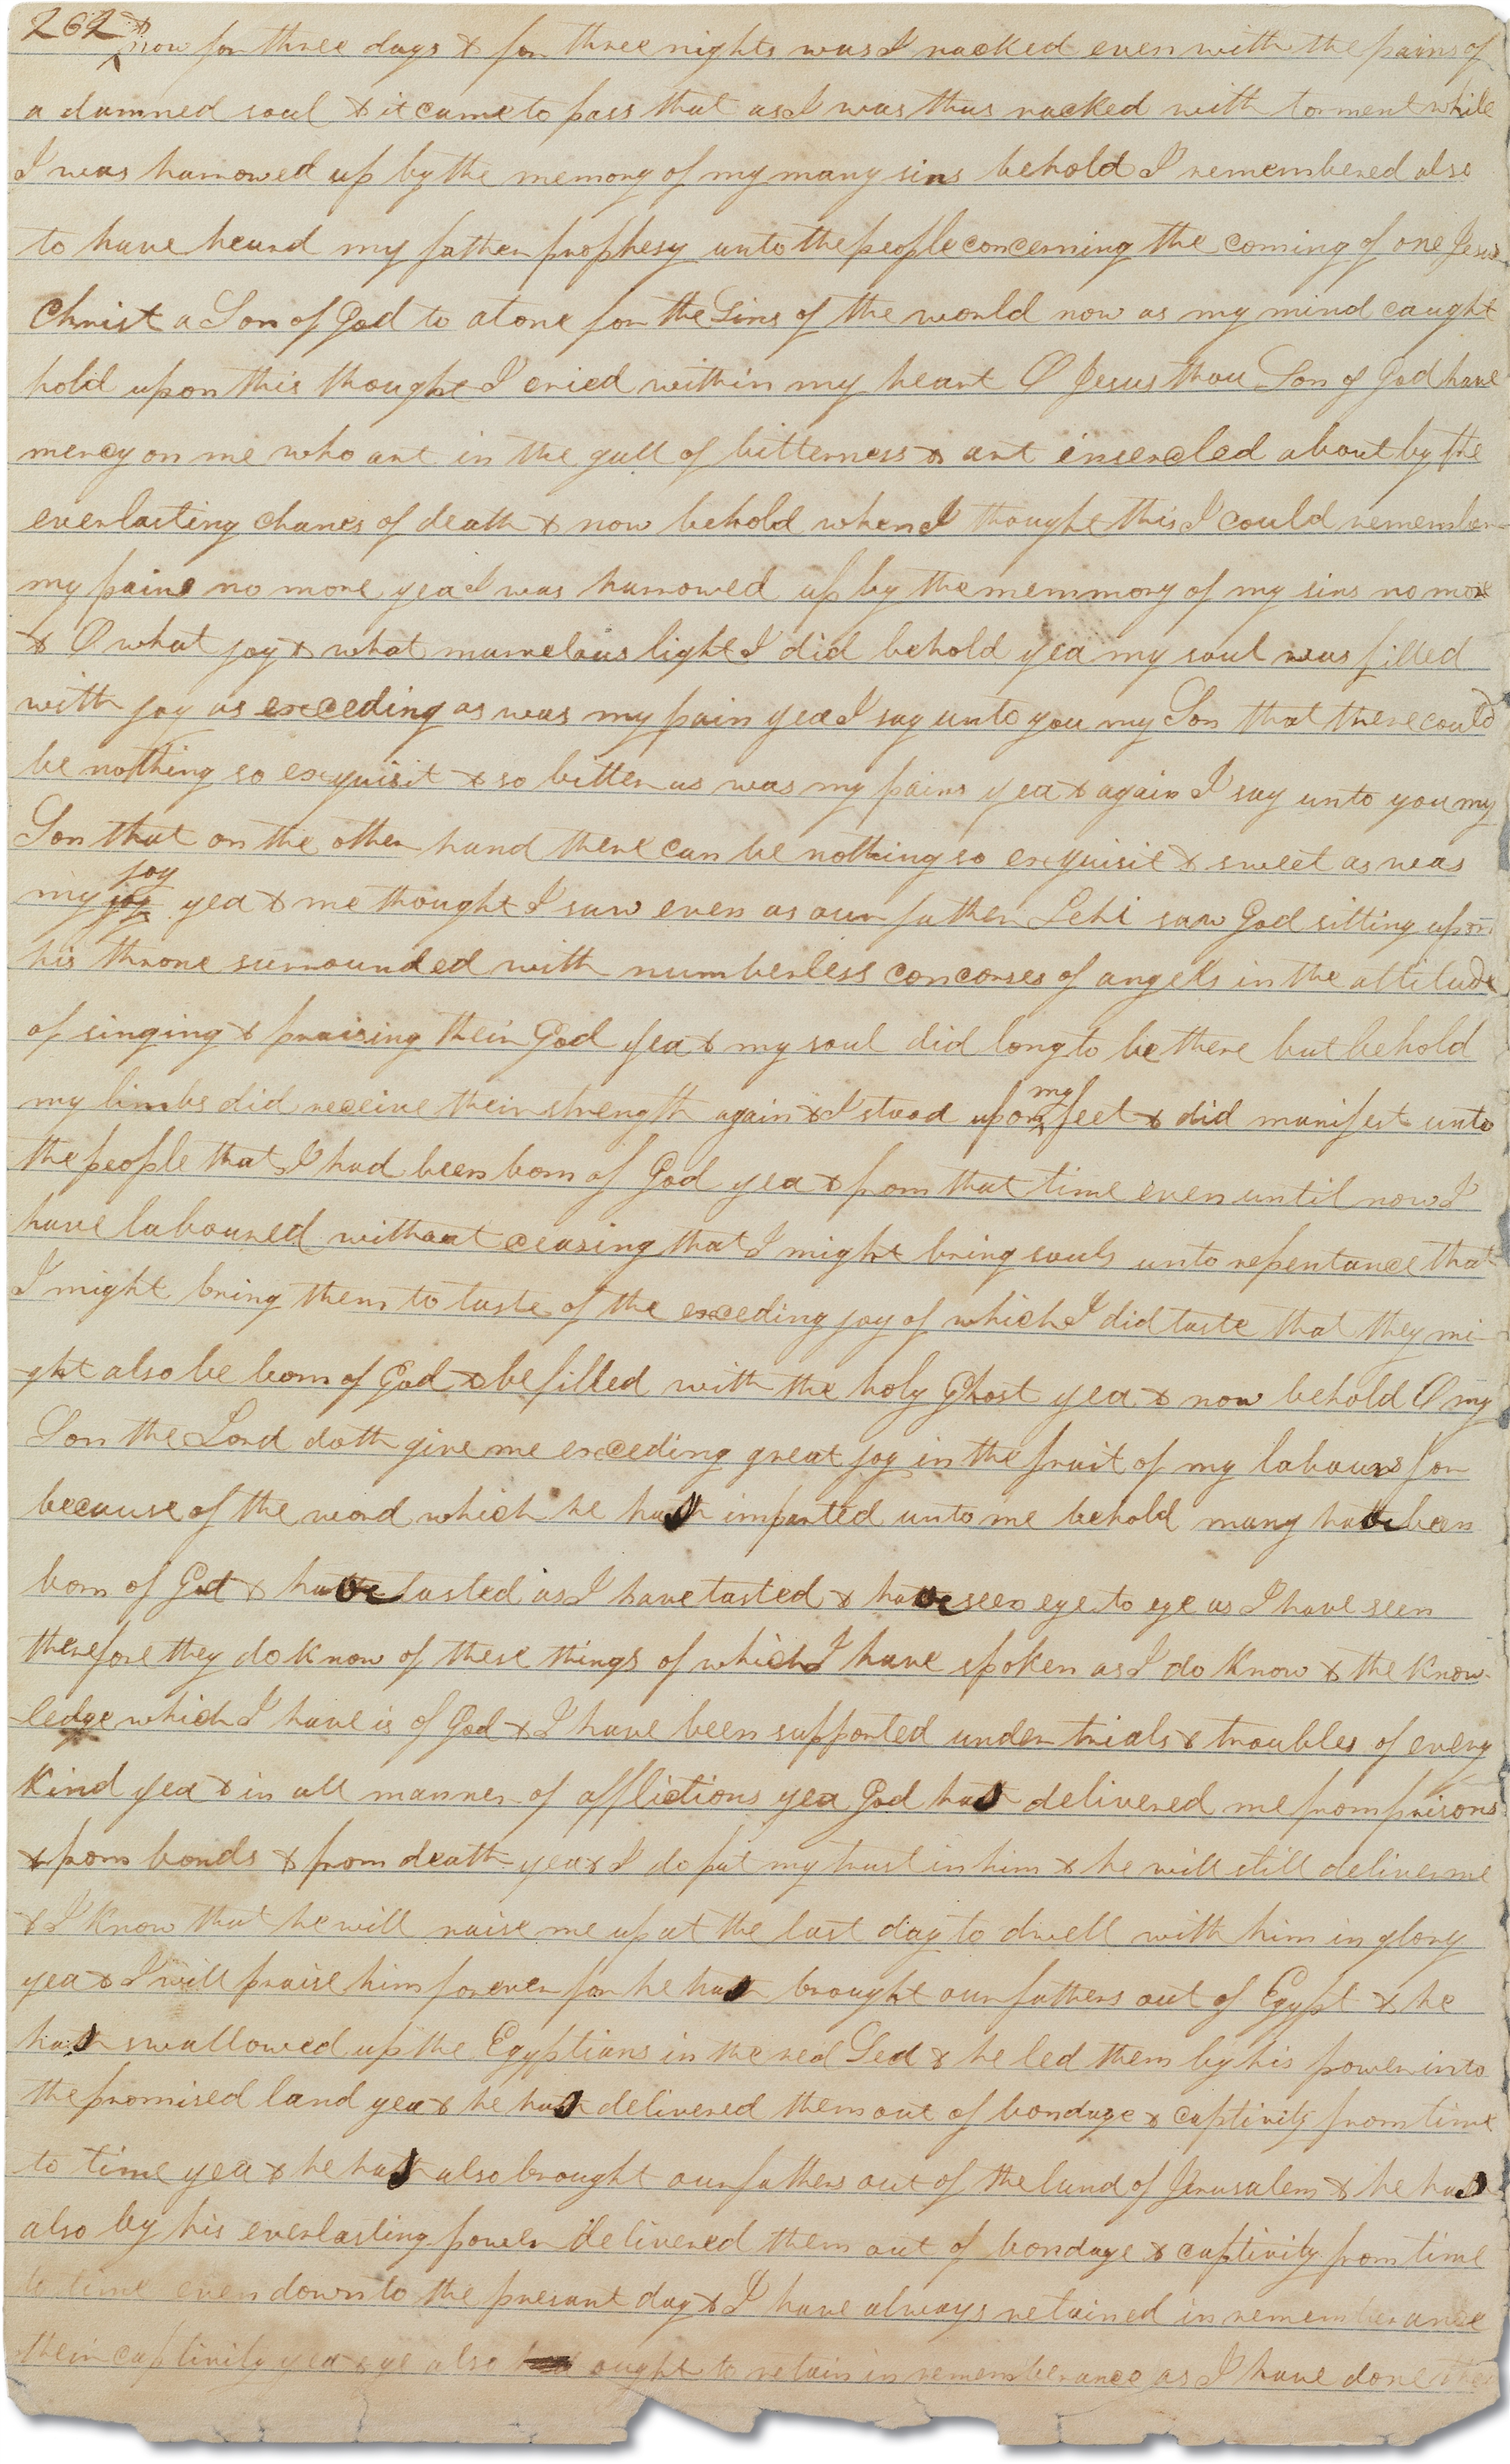 262 & now for three days & for three nights was I racked even with the pains of
a damned soul & it came to pass that as I was thus racked with torment while
I was harrowed up by the memory of my many sins behold I remembered also
to have heard my father prophesy unto the people concerning the coming of one Jesus
Christ a Son of God to atone for the Sins of the world now as my mind caught
hold upon this thought I cried within my heart O Jesus thou Son of God have
mercy on me who art in the gall of bitterness & art insercled about by the
everlasting chanes of death & now behold when I thought this I could remember
my pains no more yea I was harrowed up by the memmory of my sins no more
& O what joy & what marvelous light I did behold yea my soul was filled
with joy as exceding as was my pain yea I say unto you my Son that there could
be nothing so exquisit & so bitter as was my pains yea & again I say unto you my
Son that on the other hand there can be nothing so exquisit & sweet as was
my joy joy yea & me thought I saw even as our father Lehi saw God sitting upon
his throne surrounded with numberless concorses of angels in the attitude
of singing & praising their God yea & my soul did long to be there but behold
my limbs did receive their strength again & I stood upon my feet & did manifest unto
the people that I had been born of God yea & from that time even until now I
have laboured without ceasing that I might bring souls unto repentance that
I might bring them to taste of the exceding joy of which I did taste that they mi-
ght also be born of God & be filled with the holy Ghost yea & now behold O my
Son the Lord doth give me exceding great joy in the fruit of my labours for
because of the word which he has imparted unto me behold many have been
born of God & have tasted as I have tasted & have seen eye to eye as I have seen
therefore they do know of these things of which I have spoken as I do know & the know-
ledge which I have is of God & I have been supported under trials & troubles of every
kind yea & in all manner of afflictions yea God has delivered me from prisons
& from bonds & from death yea & I do put my trust in him & he will still deliver me
& I know that he will raise me up at the last day to dwell with him in glory
yea & I will praise him forever for he has brought our fathers out of Egypt & he
has swallowed up the Egyptians in the red Sea & he led them by his power into
the promised land yea & he has delivered them out of bondage & captivity from time
to time yea & he has also brought our fathers out of the land of Jerusalem & he has
also by his everlasting power delivered them out of bondage & captivity from time
to time even down to the present day & I have always retained in rememberance
their captivity yea & ye also ought to retain in rememberance as I have done their